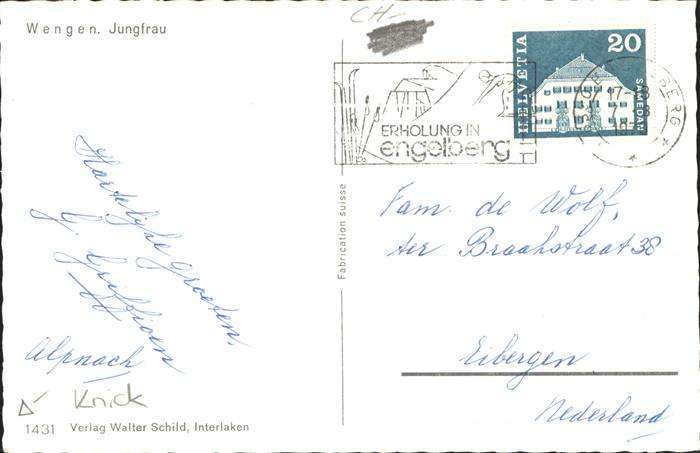 Wengen. Jungfrau
CH-
HELVETIA
20
SAMEDAN
ERHOLUNG IN
engelberg
BERG
17-18
Fam. de Wolf,
ter Braakstraat 38
Eibergen
Nederland
Fabrication suisse
Hartelijke groeten,
Alpnach
Knick
1431 Verlag Walter Schild, Interlaken